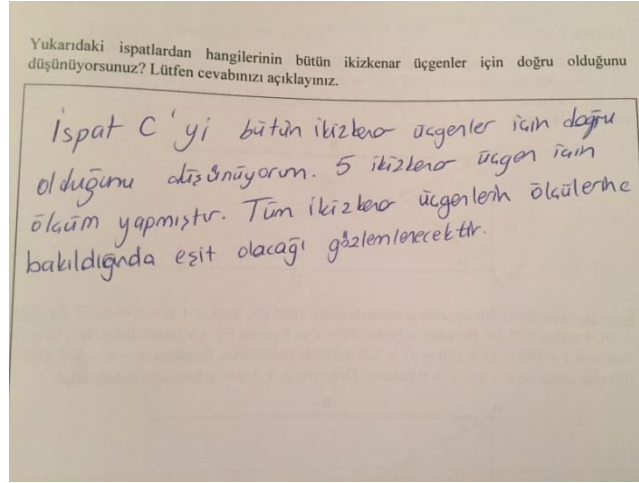 Yukarıdaki ispatlardan hangilerinin bütün ikizkenar üçgenler için doğru olduğunu
düşünüyorsunuz? Lütfen cevabınızı açıklayınız.
İspat C'yi bütün ikizkenar üçgenler için doğru
olduğunu düşünüyorum. 5 ikizkenar üçgen için
ölçüm yapmıştır. Tüm ikizkenar üçgenlerin ölçülerine
bakıldığında eşit olacağı gözlemlenecektir.